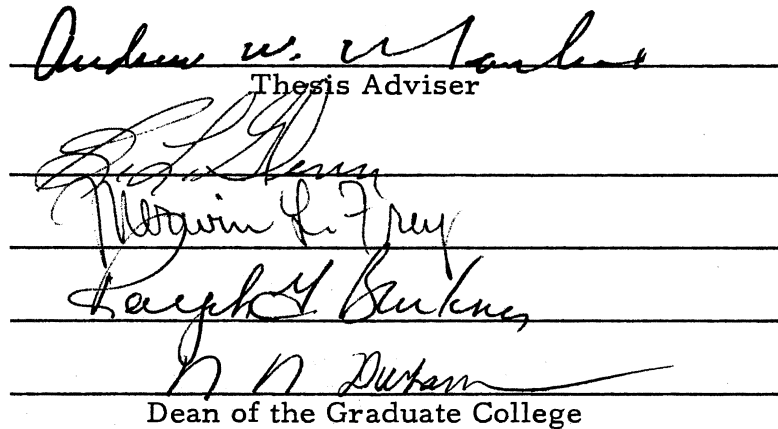 Andrew W. Monlux
Thesis Adviser
E. L.
Merwin L. Frey
Ralph G. Buckner
N N Durham
Dean of the Graduate College